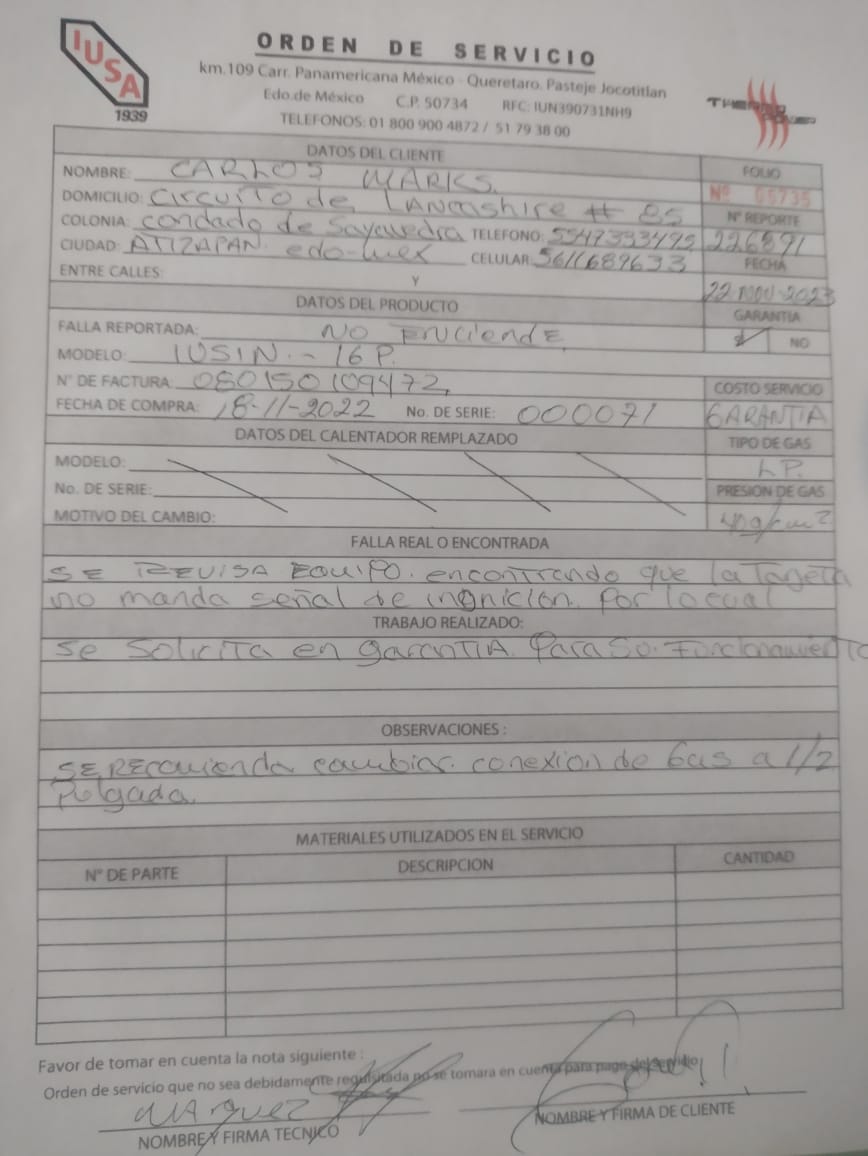 IUSA
1939
ORDEN DE SERVICIO
km.109 Carr. Panamericana México - Queretaro. Pasteje Jocotitlan
Edo.de México C.P. 50734 RFC: IUN390731NH9
TELEFONOS: 01 800 900 4872 / 51 79 38 00
THERMO POWER
DATOS DEL CLIENTE
NOMBRE: CARLOS WARKS.
FOLIO
Nº 05735
DOMICILIO: Circuito de LANCashire # 85
Nº REPORTE
COLONIA: condado de Sayavedra TELEFONO: 5547393492 226891
CIUDAD: ATIZAPAN. edo-mex CELULAR: 5611689633
FECHA
ENTRE CALLES: Y
22 NOV-2023
DATOS DEL PRODUCTO
GARANTIA
FALLA REPORTADA: NO Enciende
NO
MODELO: IUSIN - 16 P.
N° DE FACTURA: 080150109472
COSTO SERVICIO
FECHA DE COMPRA: 18-11-2022 No. DE SERIE: 000071 GARANTIA
DATOS DEL CALENTADOR REMPLAZADO
TIPO DE GAS
MODELO: LP.
No. DE SERIE:
PRESION DE GAS
MOTIVO DEL CAMBIO:
FALLA REAL O ENCONTRADA
SE REVISA EQUIPO. encontrando que la Tageta
no manda señal de ingnicion. Por lo cual
TRABAJO REALIZADO:
Se Solicita en garantIA. Para So. Funcionamiento
OBSERVACIONES :
SE RECOmienda cambiar. conexion de Gas a 1/2
Pulgada.
MATERIALES UTILIZADOS EN EL SERVICIO
N° DE PARTE DESCRIPCION CANTIDAD
Favor de tomar en cuenta la nota siguiente :
Orden de servicio que no sea debidamente requisitada no se tomara en cuenta para pago del servicio
MARQUEZ
NOMBRE Y FIRMA TECNICO
NOMBRE Y FIRMA DE CLIENTE